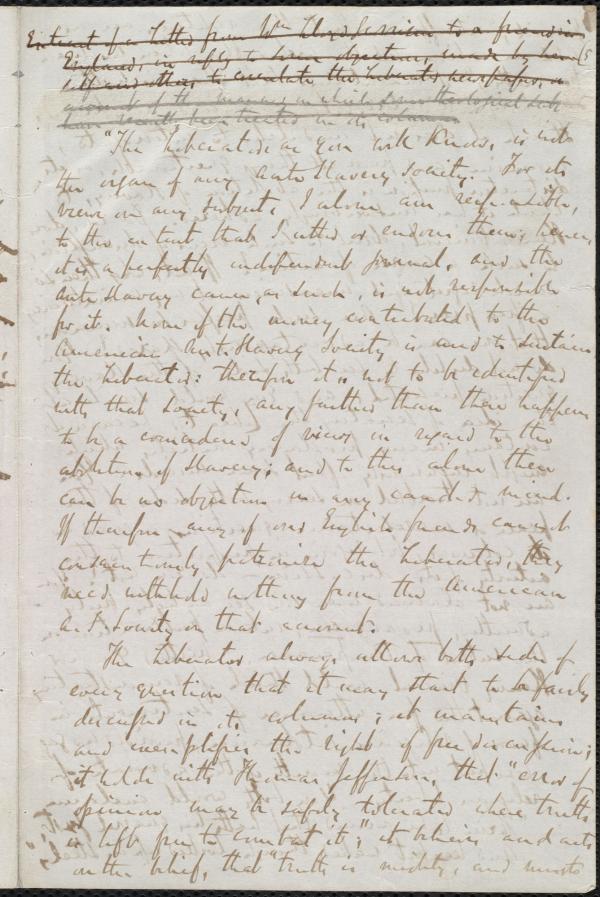 Extract of a letter from Wm Lloyd Garrison to a friend in
England, in reply to some objections made by her
self and others to circulate the Liberator newspaper, on
account of the manner in which some theological subjects
have recently been treated in its columns.
"The Liberator, as you well know, is not
the organ of any Anti Slavery Society. For its
views on any subject, I alone am responsible,
to the extent that I utter or endorse them; hence
it is a perfectly independent journal, and the
Anti Slavery cause, as such, is not responsible
for it. None of the money contributed to the
American Anti-Slavery Society is used to sustain
the Liberator: therefore it is not to be identified
with that Society, any further than there happens
to be a coincidence of views in regard to the
abolition of Slavery; and to this alone there
can be no objection in any candid mind.
If therefore any of our English friends cannot
conscientiously patronise the Liberator, they
need withhold nothing from the American
A. S. Society on that account.
The Liberator always allows both sides of
every question that it may start to be fairly
discussed in its columns; it maintains
and exemplifies the right of free discussion;
it holds with Thomas Jefferson, that "error of
opinion may be safely tolerated where truth
is left free to combat it;" it believes and acts
on the belief, that "truth is mighty, and must